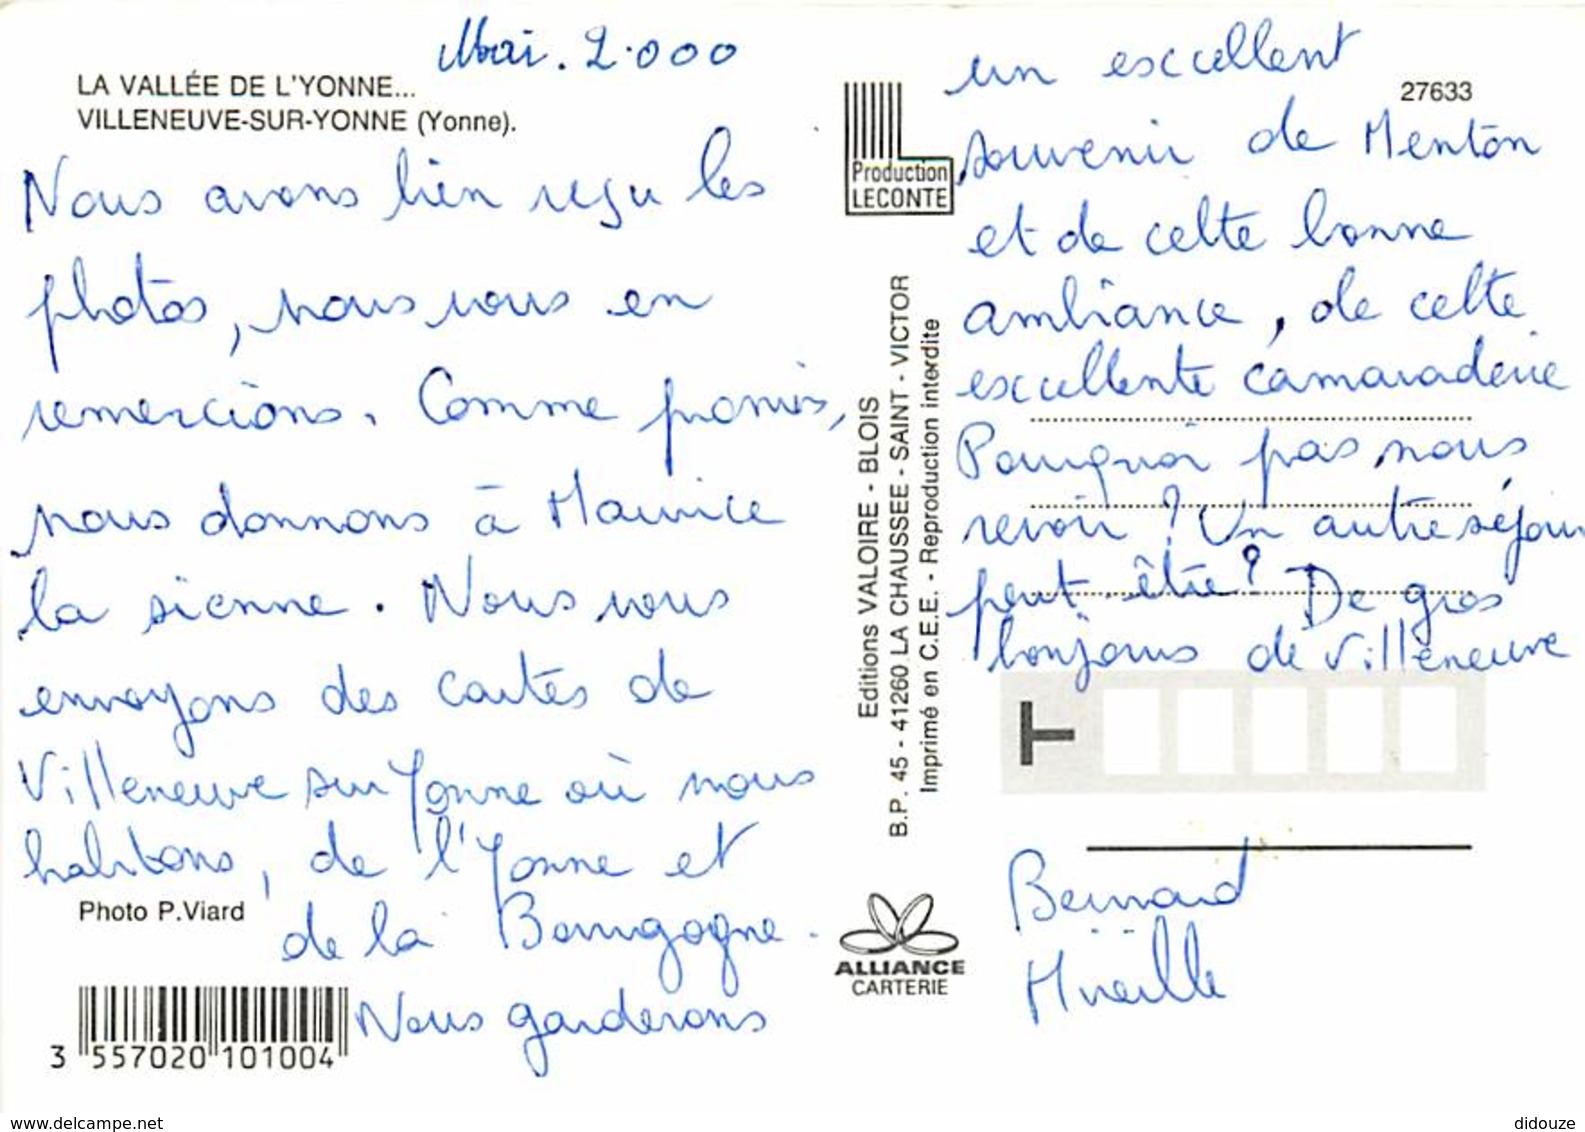 Mai. 2.000
LA VALLÉE DE L'YONNE...
VILLENEUVE-SUR-YONNE (Yonne).
Nous avons bien reçu les
photos, nous vous en
remercions. Comme promis,
nous donnons à Maurice
la sienne. Nous vous
envoyons des cartes de
Villeneuve sur Yonne où nous
habitons, de l'Yonne et
de la Bourgogne.
Nous garderons
Photo P.Viard
3 557020 101004
Production
LECONTE
Editions VALOIRE - BLOIS
B.P. 45 - 41260 LA CHAUSSEE - SAINT - VICTOR
Imprimé en C.E.E. - Reproduction interdite
ALLIANCE
CARTERIE
27633
un excellent
souvenir de Menton
et de cette bonne
ambiance, de cette
excellente camaraderie
Pourquoi pas, nous
revoir ? Un autre séjour
peut-être ? De gros
bonjours de Villeneuve
T
Bernard
Mireille
www.delcampe.net
didouze